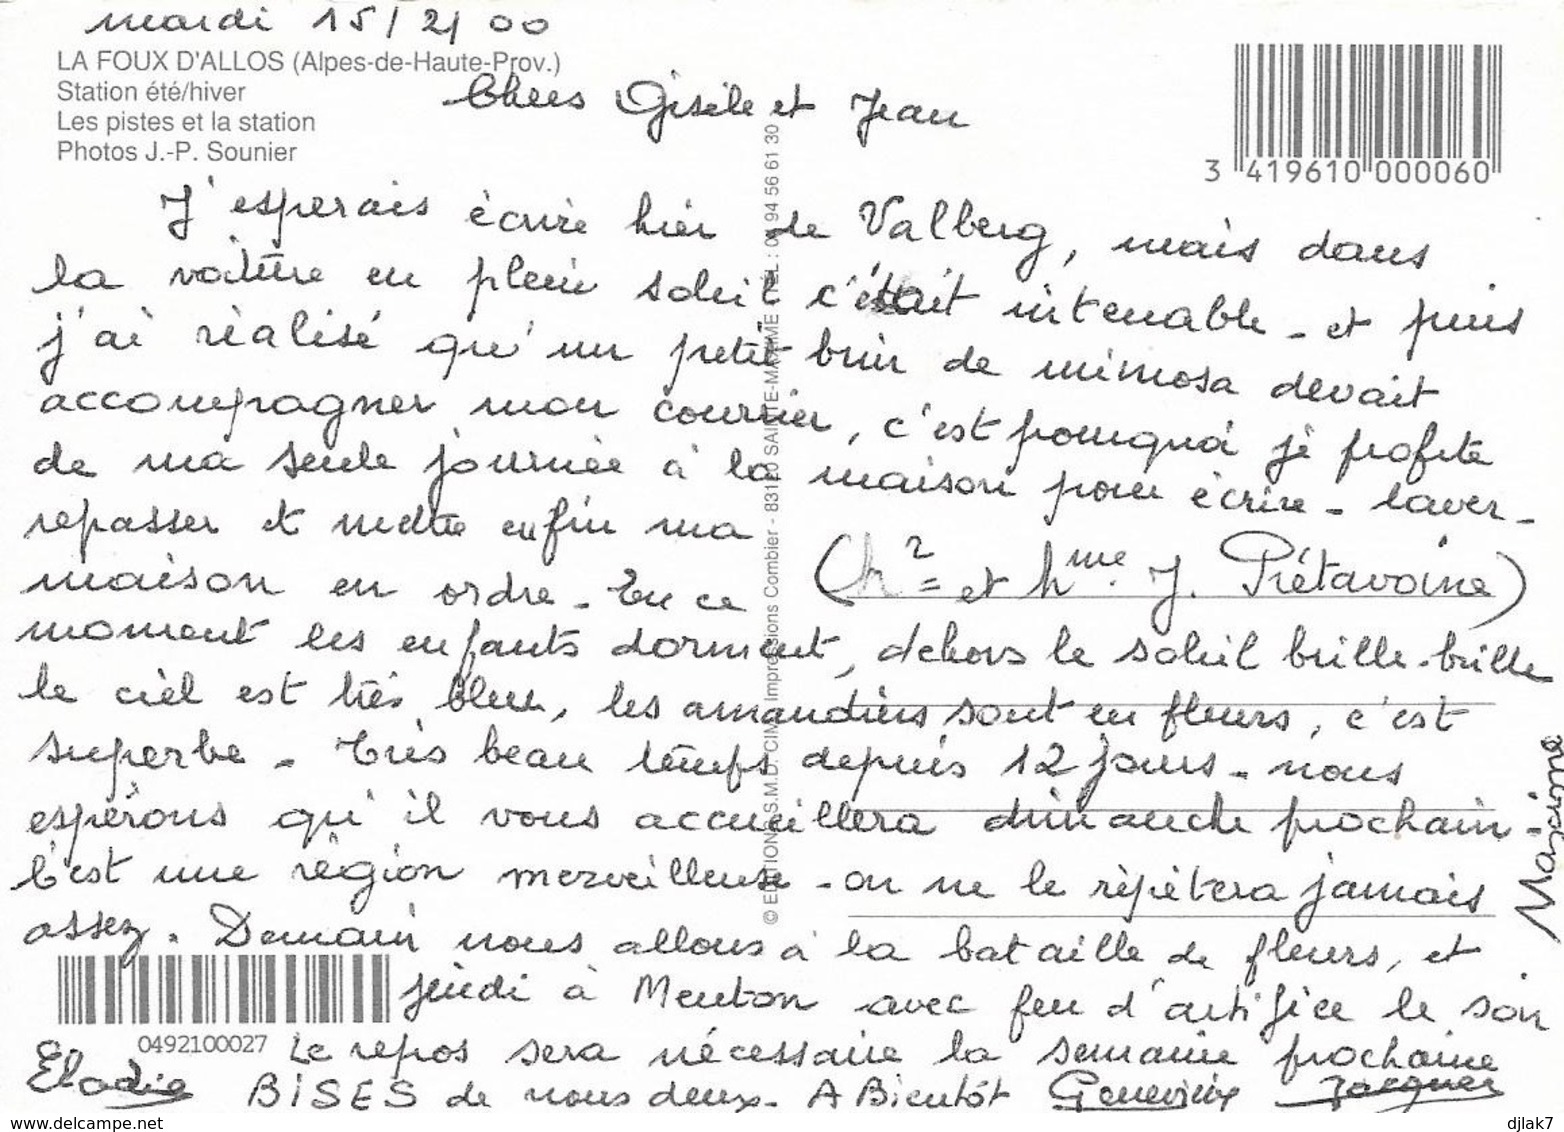 mardi 15/2/00
LA FOUX D'ALLOS (Alpes-de-Haute-Prov.)
Station été/hiver
Les pistes et la station
Photos J.-P. Sounier
3 419610 000060
Chers Gisèle et Jean
J'esperais écrire hier de Valberg, mais dans
la voiture en plein soleil c'était intenable - et puis
j'ai réalisé qu'un petit brin de mimosa devait
accompagner mon courrier, c'est pourquoi je profite
de ma seule journée à la maison pour écrire - laver -
repasser et mettre enfin ma
maison en ordre - En ce (Mr et Mme J. Prétavoine)
moment les enfants dorment, dehors le soleil brille-brille
le ciel est très bleu, les amandiers sont en fleurs, c'est
superbe - Très beau temps depuis 12 jours - nous
espérons qu'il vous accueillera dimanche prochain -
C'est une région merveilleuse - on ne le répètera jamais
assez. Demain nous allons à la bataille de fleurs, et
jeudi à Menton avec feu d'artifice le soir
0492100027
Le repos sera nécessaire la semaine prochaine
BISES de nous deux - A Bientôt Geneviève Jacques
Elodie
Maxime
© EDITIONS S.M.D. CIM Impressions Combier - 83120 SAINTE-MAXIME - TEL : 94 56 61 30
djlak7
www.delcampe.net